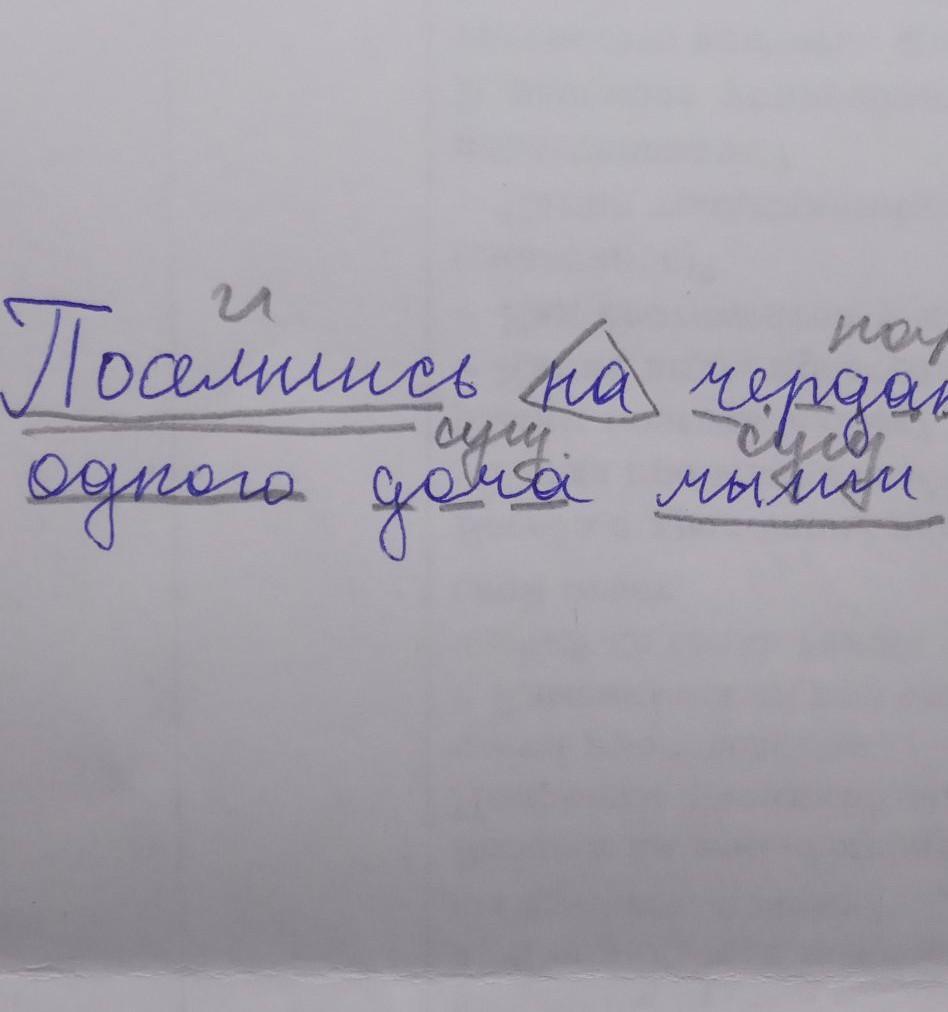 нар
Поселились на чердак
сущ. сущ
одного дома мыши